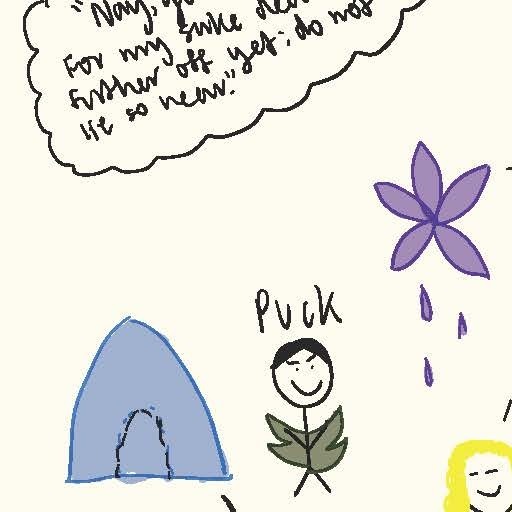 "Nay,
For my sake
further off yet; do not
lie so near."
PUCK